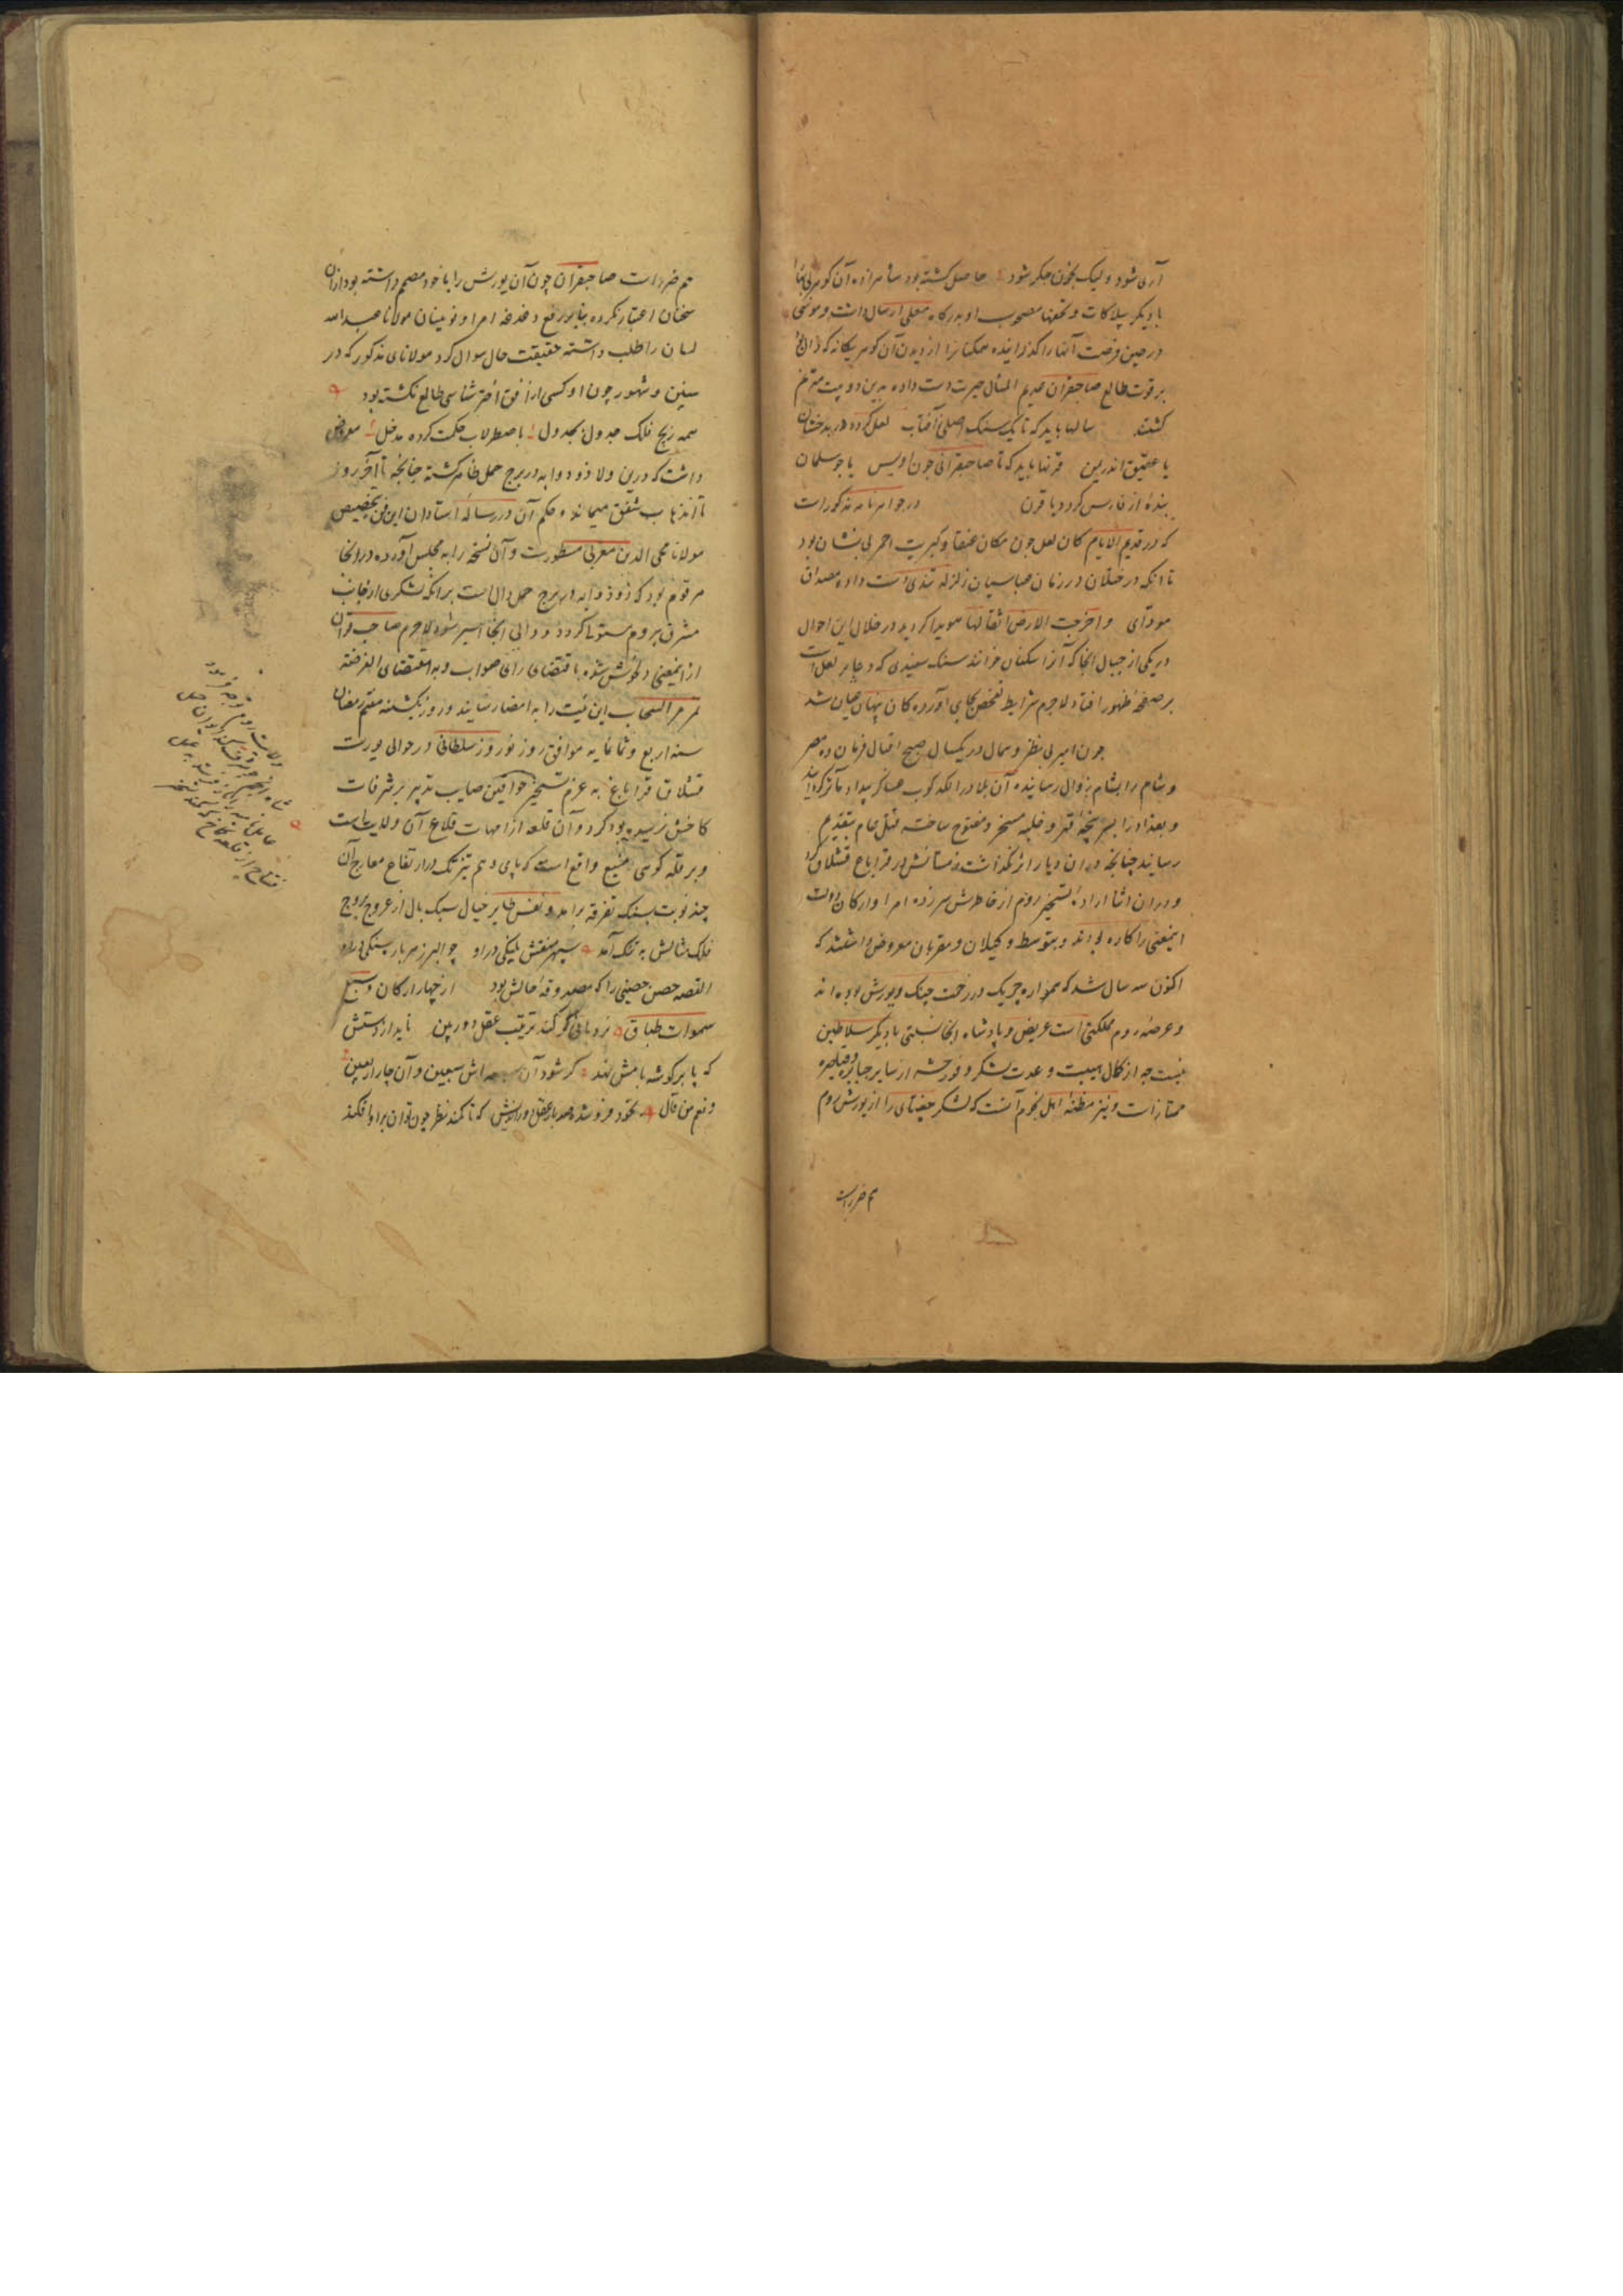 آری شود ولیک بخون جگر شود حاصل کشته بود شاهزاده آن کوهر بی بها
با دیگر بیلاکات و تحفها مصحوب او بدرکاه معلی ارسال داشت و موسی
در حین فرصت آنها را کذرانیده همکنانرا از دیدن آن کوهر یکانه که
بر قوت طالع صاحبقران عدیم المثال حیرت دست داده بدین دو بیت مترنم
کشتند سالها باید که تا یک سنک اصلی ز آفتاب لعل کردد در بدخشان
یا عقیق اندر یمن قرنها باید که تا صاحبقرانی چون اویس یا چو سلمان
بنده از فارس کردد یا قرن در جواهرنامه مذکورست
که در قدیم الایام کان لعل چون مکان عنقا و کبریت احمر بی نشان بود
تا انکه در ختلان در زمان عباسیان زلزله تندی دست داده مصداق
مودای واخرجت الارض اثقالها هویدا کردید در خلال این احوال
در یکی از جبال انجا که آنرا سکنان خوانند سنک سفیدی که وعاء لعل است
بر صفحه ظهور افتاد لاجرم شرایط تفحص بجای آورده کان پنهان عیان شد
چون امیر بی نظیر و همال در یکسال صبح اقبال فرمان ده مصر
و شام را بشام زوال رسانیده آن بلاد را لکدکوب عساکر بیداد مآثر کردانید
و بغداد را بسر پنجه قهر و غلبه مسخر و مفتوح ساخته قتل عام بتقدیم
رسانید چنانچه در ان دیار اثر نکذاشت زمستانش در قراباغ قشلاق کرد
و در ان اثنا اراده تسخیر روم از خاطرش سر زده امرا و ارکان دولت
اینمعنی را کاره بودند و بتوسط وکیلان و مقربان معروض داشتند که
اکنون سه سال شد که همواره چریک در زحمت جنک و یورش بوده اند
و عرصه روم مملکتی است عریض و پادشاه انجا نسبتی با دیگر سلاطین
نیست چه از کمال هیبت و عدت لشکر و فور حشم از سایر جبابره و قیاصره
ممتازست و نیز مظنه اهل نجوم آنست که لشکر جغتای را از یورش روم
هم ضررست
هم ضررست صاحبقران چون آن یورش را با خود مصمم داشته بود ازان
سخنان اعتبار نکرده بنابر رفع دغدغه امرا و نوینان مولانا عبدالله
لسان را طلب داشته حقیقت حال سوال کرد مولانای مذکور که در
سنین و شهور چون او کسی از افق اختر شناسی طالع نکشته بود
همه زیج فلک جدول بجدول باصطرلاب حکمت کرده مدخل معروض
داشت که درین ولا ذو ذوابه در برج حمل ظاهر کشته چنانچه تا آخر روز
تا ذهاب شفق میماند و حکم آن در رساله استادان این فن بتخصیص
مولانا محی الدین مغربی مسطورست و آن نسخه را به مجلس آورده در انجا
مرقوم بود که ذو ذوابه در برج حمل دال است بر انکه لشکری از جانب
مشرق بروم مستولی کردد و والی انجا اسیر شود لاجرم صاحب قران
از اینمعنی دلخوش شده باقتضای رای صواب و به مقتضای الفرصة
تمر مر السحاب این نیت را به امضا رسانید و روز یکشنبه هفتم رمضان
سنه اربع و ثمانمایه موافق روز نوروز سلطانی در حوالی یورت
قشلاق قراباغ به عزم تسخیر خواقین صایب تدبیر بر شرفات
کاخش نرسیده بود کرد و آن قلعه از امهات قلاع آن ولایت است
و بر قله کوهی منیع واقع است که پای وهم تیزتک در ارتفاع معارج آن
چند نوبت بسنک تفرقه برامد و نفس طایر خیال سبک بال از عروج بروج
فلک مثالش به تنک آمد سپهر منقش پلنکی در او چو البرز هر پاره سنکی در او
القصه حصن حصینی را که مصدوقه حالش بود از چهار ارکان و سبع
سموات طباق نردبانی کر کند ترتیب عقل دور بین ناید از دستش
که پا بر کوشه بامش نهد کر شود آن سبعه اش سبعین و آن چار اربعین
و نعم من قال بخود فرو شده صد بار عقل دور اندیش که تا کمند نظر چون توان بر او افکند